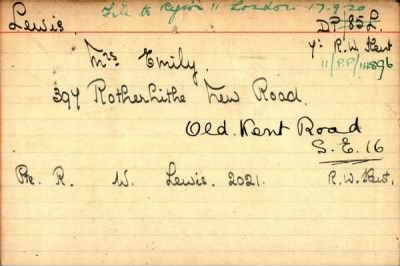 File to Region 11 London 17.9.20
Lewis. DP/85L.
Mrs Emily. 7: R.W. Kent
11/PP/14896
397 Rotherhithe New Road.
Old. Kent Road
S.E. 16
Pte. R. W. Lewis. 2021. R.W. Kent.